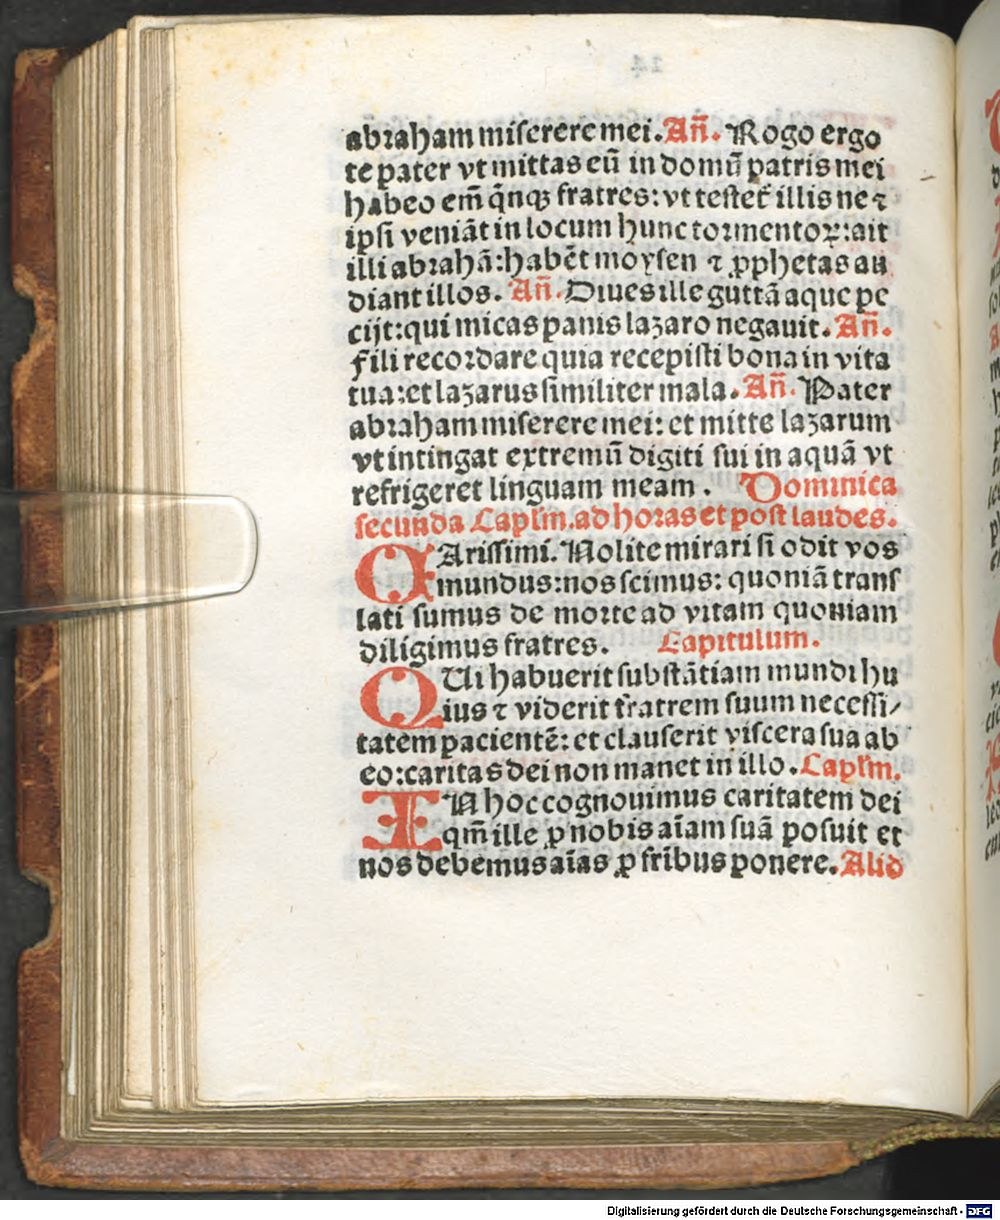 abraham miserere mei. Añ. Rogo ergo
te pater vt mittas eū in domū patris mei
habeo em̄ q̄nqꝫ fratres: vt testet᷑ illis ne ⁊
ipsi veniāt in locum hunc tormentoꝝ: ait
illi abrahā: habēt moysen ⁊ ꝓphetas au
diant illos. Añ. Diues ille guttā aque pe
cijt: qui micas panis lazaro negauit. Añ.
Fili recordare quia recepisti bona in vita
tua: et lazarus similiter mala. Añ. Pater
abraham miserere mei: et mitte lazarum
vt intingat extremū digiti sui in aquā vt
refrigeret linguam meam. Dominica
secunda Capl'm. ad horas et post laudes.
CArissimi. Nolite mirari si odit vos
mundus: nos scimus: quoniā trans
lati sumus de morte ad vitam quoniam
diligimus fratres. Capitulum.
QUi habuerit substātiam mundi hu
ius ⁊ viderit fr̄atrem suum necessi/
tatem pacientē: et clauserit viscera sua ab
eo: caritas dei non manet in illo. Capl'm.
IN hoc cognouimus caritatem dei
qm̄ ille ꝓ nobis aīam suā posuit et
nos debemus aīas ꝓ fr̄ibus ponere. Aliď
Digitalisierung gefördert durch die Deutsche Forschungsgemeinschaft - DFG